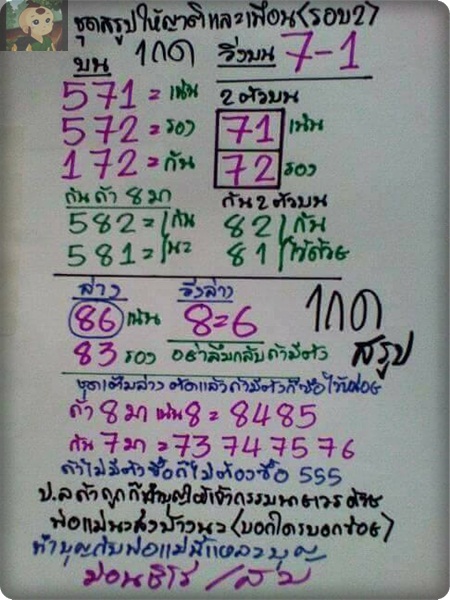 ชุดสรุปให้ญาติและเพื่อน(รอบ2)
บน วิ่งบน 7-1
571 = เน้น
572 = รอง
172 = กัน
2 ตัวบน
71 เน้น
72 รอง
กันถ้า 8 มา
582 = กัน
581 =
กัน 2 ตัวบน
82 กัน
81 ไว้ด้วย
ล่าง
86 เน้น
83 รอง
วิ่งล่าง
8=6
อย่าลืมกลับถ้ามีตัว
สรุป
ชุดเต็มล่าง ตัดแล้วถ้ามีตัวก็ซื้อไว้หน่อย
ถ้า 8 มา เน้น 8 = 84 85
กัน 7 มา = 73 74 75 76
ถ้าไม่มีตัวซื้อก็ไม่ต้องซื้อ 555
ป.ล ถ้าถูกก็ทำบุญให้เจ้ากรรมนายเวรด้วย
พ่อแม่ บ้างนะ (บอกใครบอกช่อย)
ทำบุญกับพ่อแม่